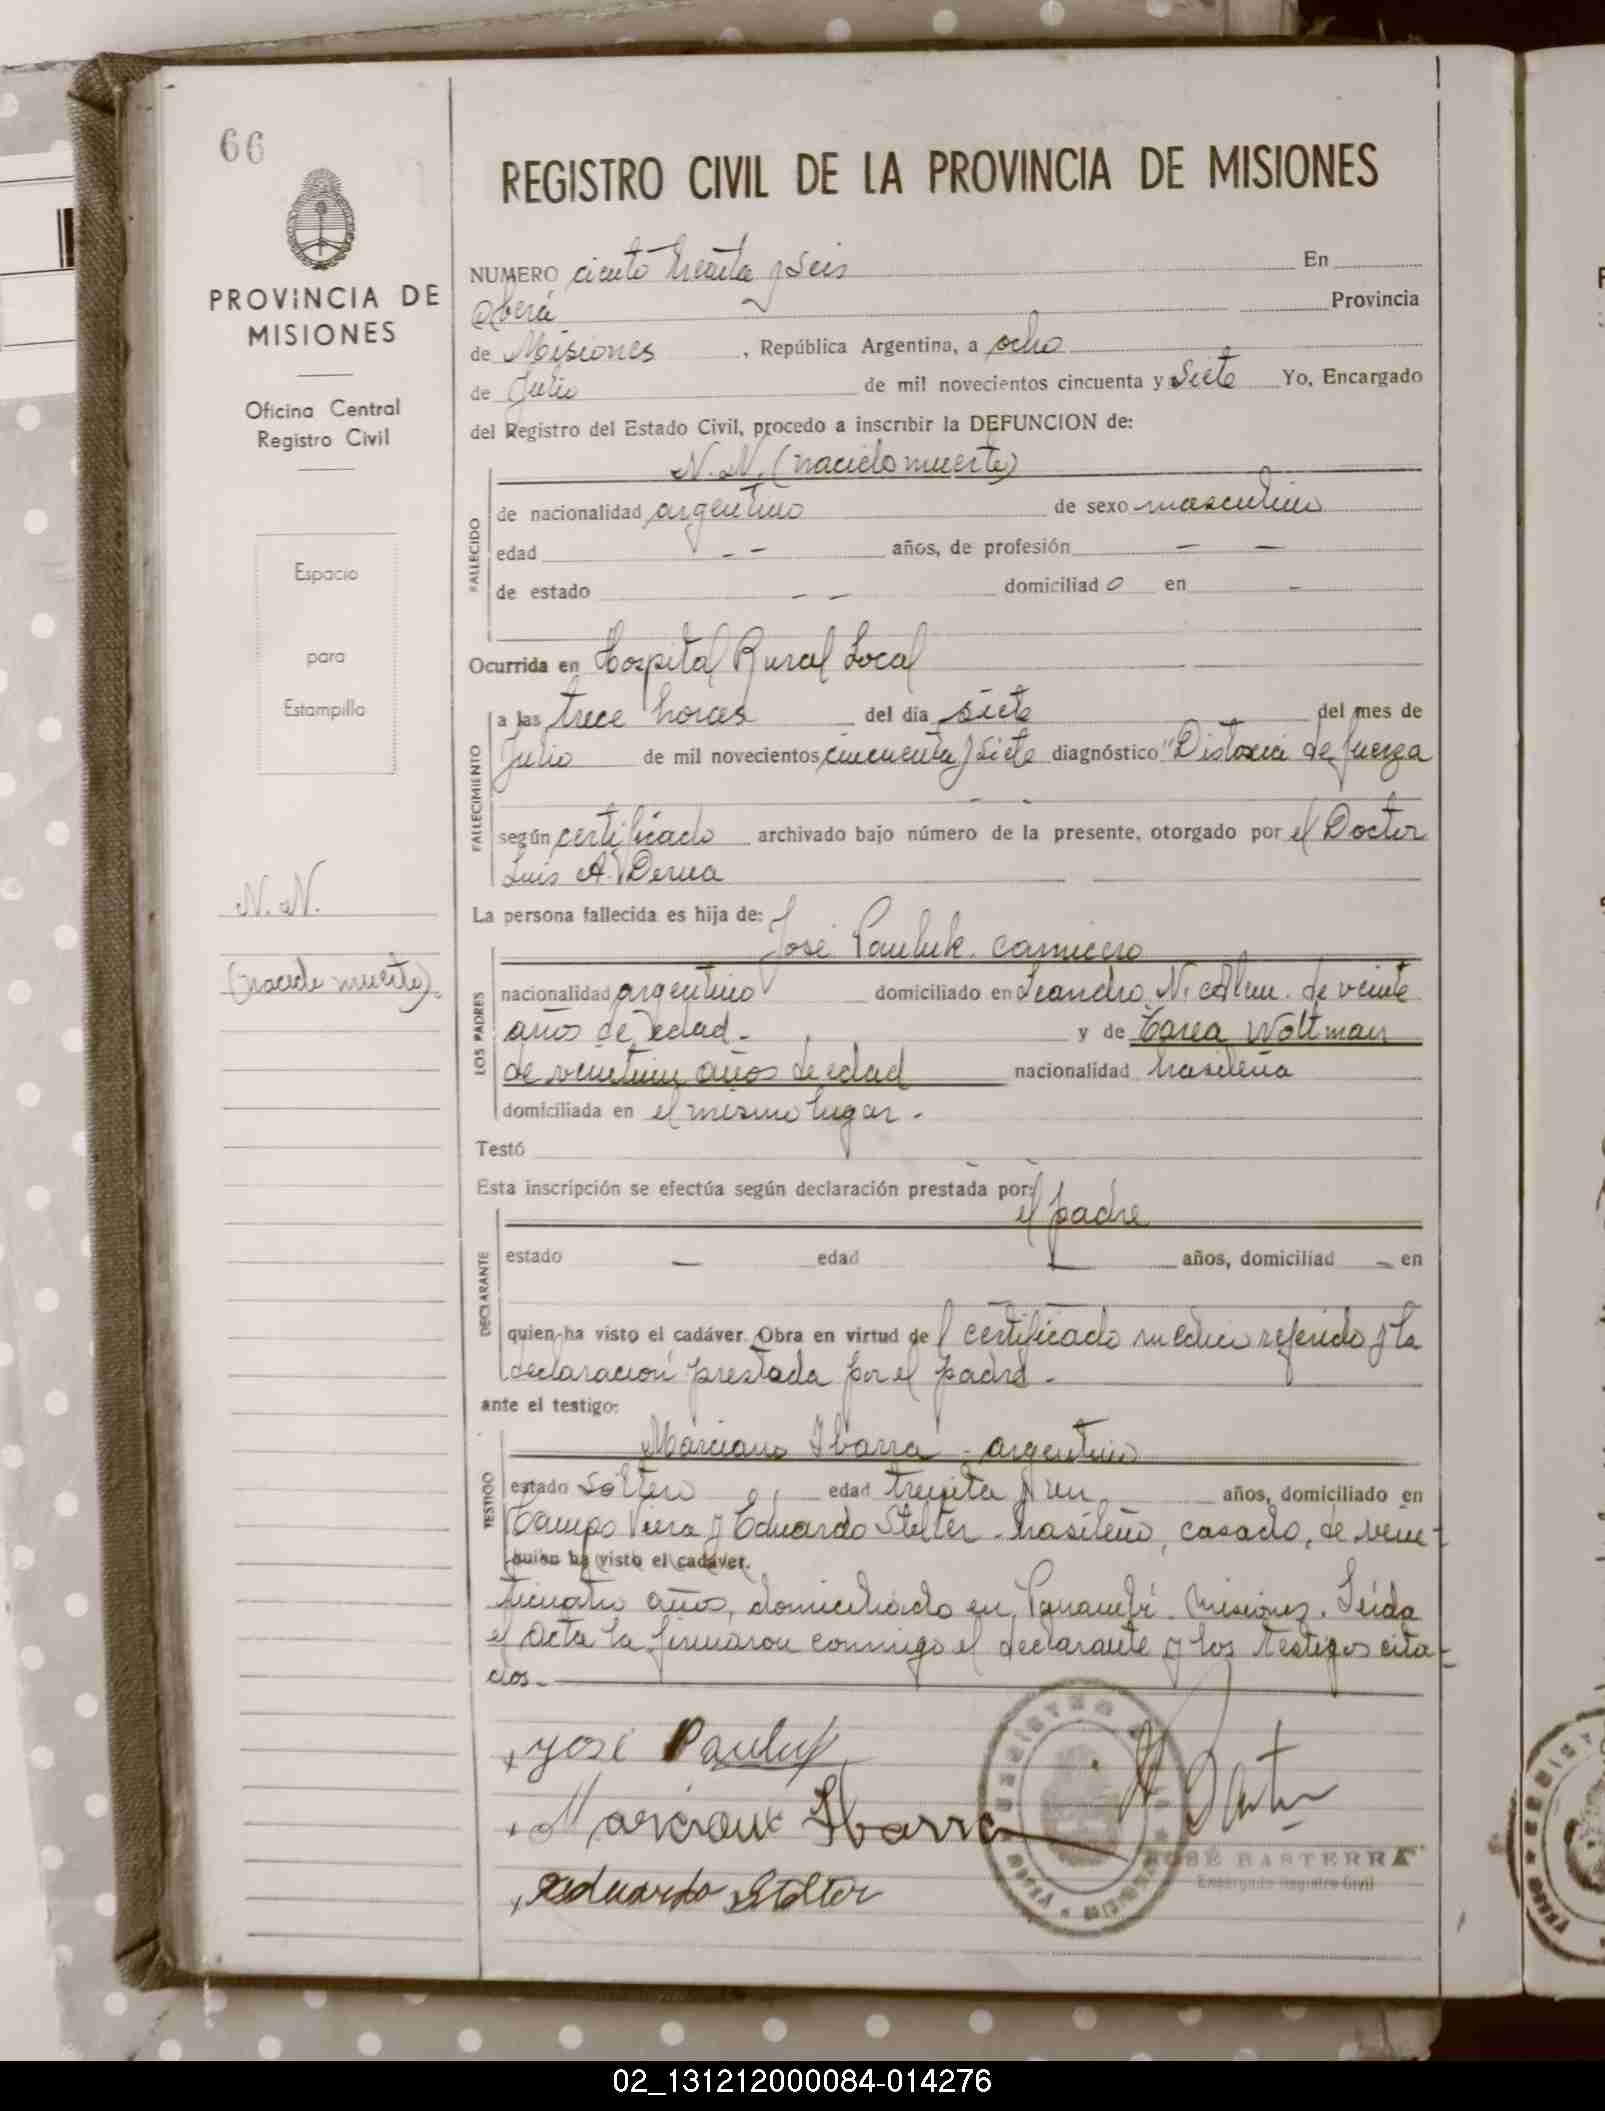 66
REGISTRO CIVIL DE LA PROVINCIA DE MISIONES
PROVINCIA DE
MISIONES
Oficina Central
Registro Civil
Espacio
para
Estampilla
N. N.
(nacido muerto)
NUMERO ciento treinta y seis En
Oberá Provincia
de Misiones , República Argentina, a ocho
de Julio de mil novecientos cincuenta y siete Yo, Encargado
del Registro del Estado Civil, procedo a inscribir la DEFUNCION de:
N. N. (nacido muerto)
FALLECIDO
de nacionalidad argentino de sexo masculino
edad -- años, de profesión - -
de estado -- domiciliado en -
Ocurrida en Hospital Rural Local
FALLECIMIENTO
a las trece horas del día siete del mes de
Julio de mil novecientos cincuenta y siete diagnóstico "Distocia de fuerza
según certificado archivado bajo número de la presente, otorgado por el Doctor
Luis A.
La persona fallecida es hija de:
José Pauluk. carnicero
LOS PADRES
nacionalidad argentino domiciliado en Leandro N. Alem. de veinte
años de edad. y de Woltman
de veintiun años de edad nacionalidad brasileña
domiciliada en el mismo lugar.
Testó
Esta inscripción se efectúa según declaración prestada por:
el padre
DECLARANTE
estado — edad años, domiciliad - en
quien ha visto el cadáver. Obra en virtud del certificado medico referido y la
declaración prestada por el padre.
ante el testigo:
Marciano Ibarra - argentino
TESTIGO
estado soltero edad treinta y un años, domiciliado en
Campo Viera y Eduardo Stelter - brasileño, casado, de vein-
quien ha visto el cadáver.
ticuatro años, domiciliado en Panambí. Misiones. Leida
el acta la firmaron conmigo el declarante y los testigos cita-
dos.
José Pauluk
Marciano Ibarra
Eduardo Stelter
JOSÉ BASTERRA
Encargado Registro Civil
02_131212000084-014276